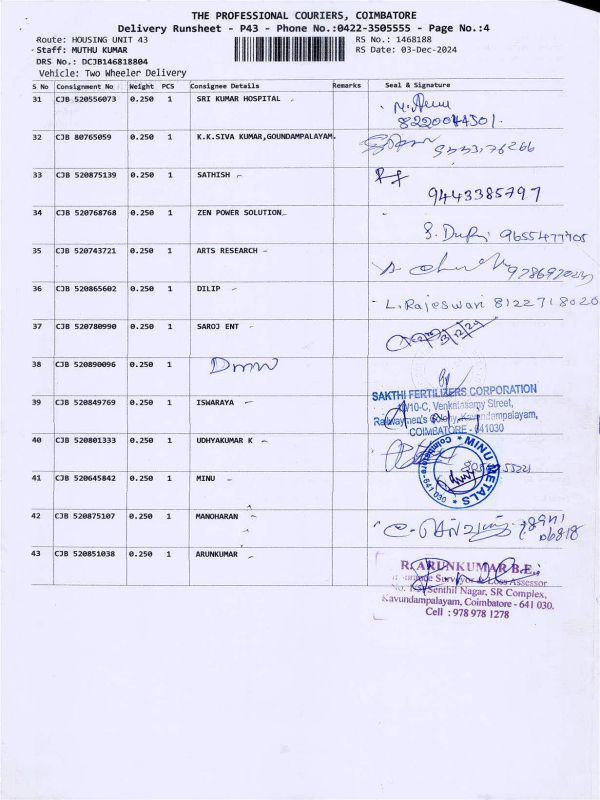 THE PROFESSIONAL COURIERS, COIMBATORE
Delivery Runsheet - P43 - Phone No.:0422-3505555 - Page No.:4
Route: HOUSING UNIT 43 RS No.: 1468188
Staff: MUTHU KUMAR RS Date: 03-Dec-2024
DRS No.: DCJB146818804
Vehicle: Two Wheeler Delivery
S No Consignment No Weight PCS Consignee Details Remarks Seal & Signature
31 CJB 520556073 0.250 1 SRI KUMAR HOSPITAL
8220044301.
32 CJB 80765059 0.250 1 K.K.SIVA KUMAR,GOUNDAMPALAYAM.
33 CJB 520875139 0.250 1 SATHISH
9443385797
34 CJB 520768768 0.250 1 ZEN POWER SOLUTION
35 CJB 520743721 0.250 1 ARTS RESEARCH
36 CJB 520865602 0.250 1 DILIP L. Rajeswari 8122718020
37 CJB 520780990 0.250 1 SAROJ ENT 3/12/24
38 CJB 520890096 0.250 1
SAKTHI FERTILIZERS CORPORATION
10-C, Venkatasamy Street,
39 CJB 520849769 0.250 1 ISWARAYA
Railwaymen's Colony, Kavundempalayam,
COIMBATORE - 641030
40 CJB 520801333 0.250 1 UDHYAKUMAR K
MINU METALS
Coimbatore-641 030
41 CJB 520645842 0.250 1 MINU
42 CJB 520875107 0.250 1 MANOHARAN
43 CJB 520851038 0.250 1 ARUNKUMAR
R. ARUNKUMAR B.E.,
Surveyor & Loss Assessor
Senthil Nagar, SR Complex,
Kavundampalayam, Coimbatore - 641 030.
Cell : 978 978 1278